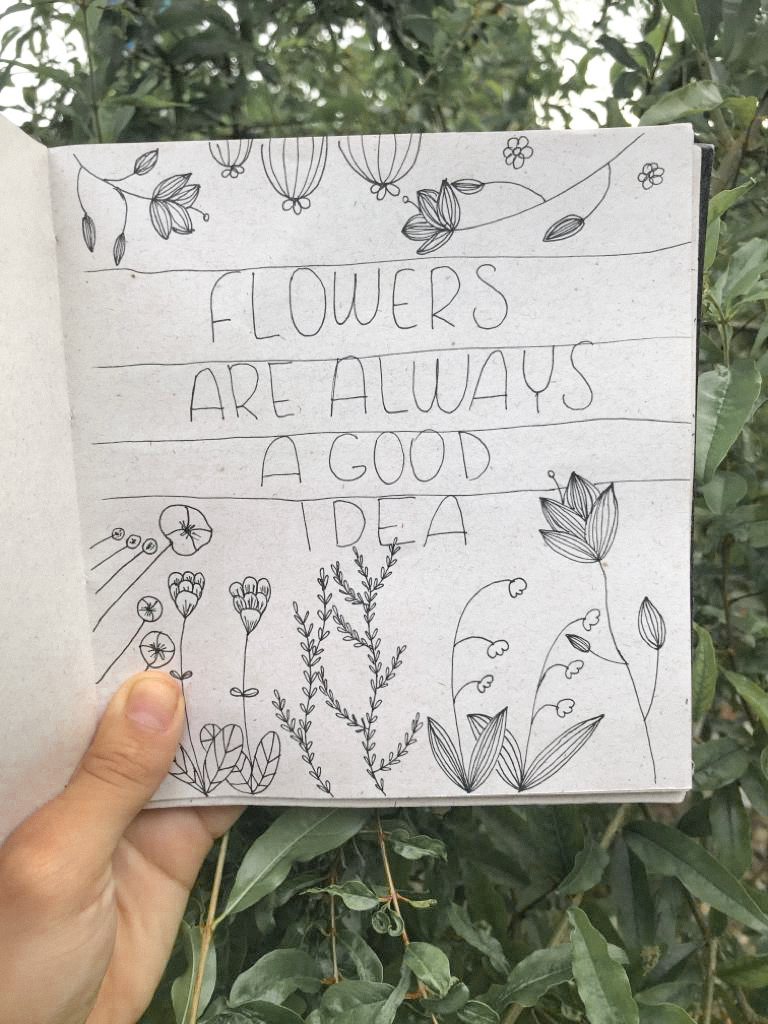 FLOWERS
ARE ALWAYS
A GOOD
IDEA